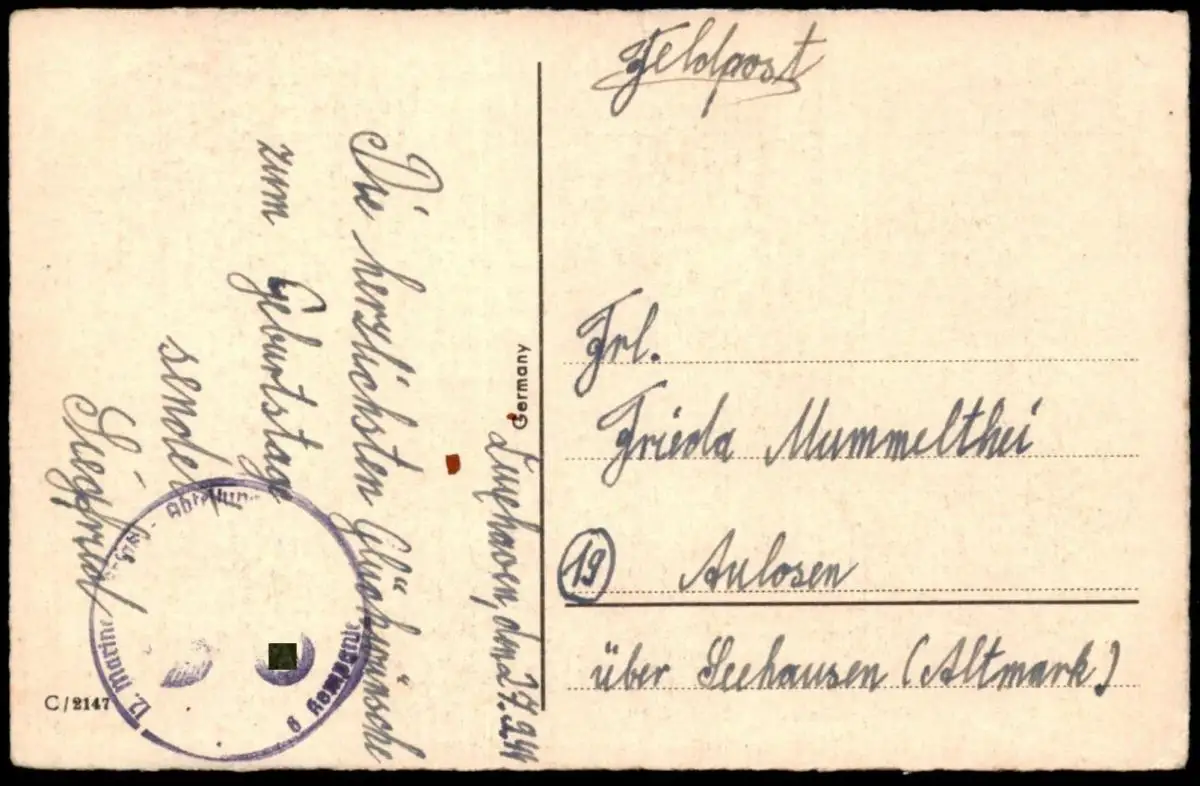 Feldpost
Frl.
Frieda Mummelthei
19 Aulosen
über Seehausen (Altmark)
Germany
den
Die herzlichsten Glückwünsche
zum Geburtstage
sendet
Siegfried
12. Marine Abteilung
6 Kompanie
C/2147